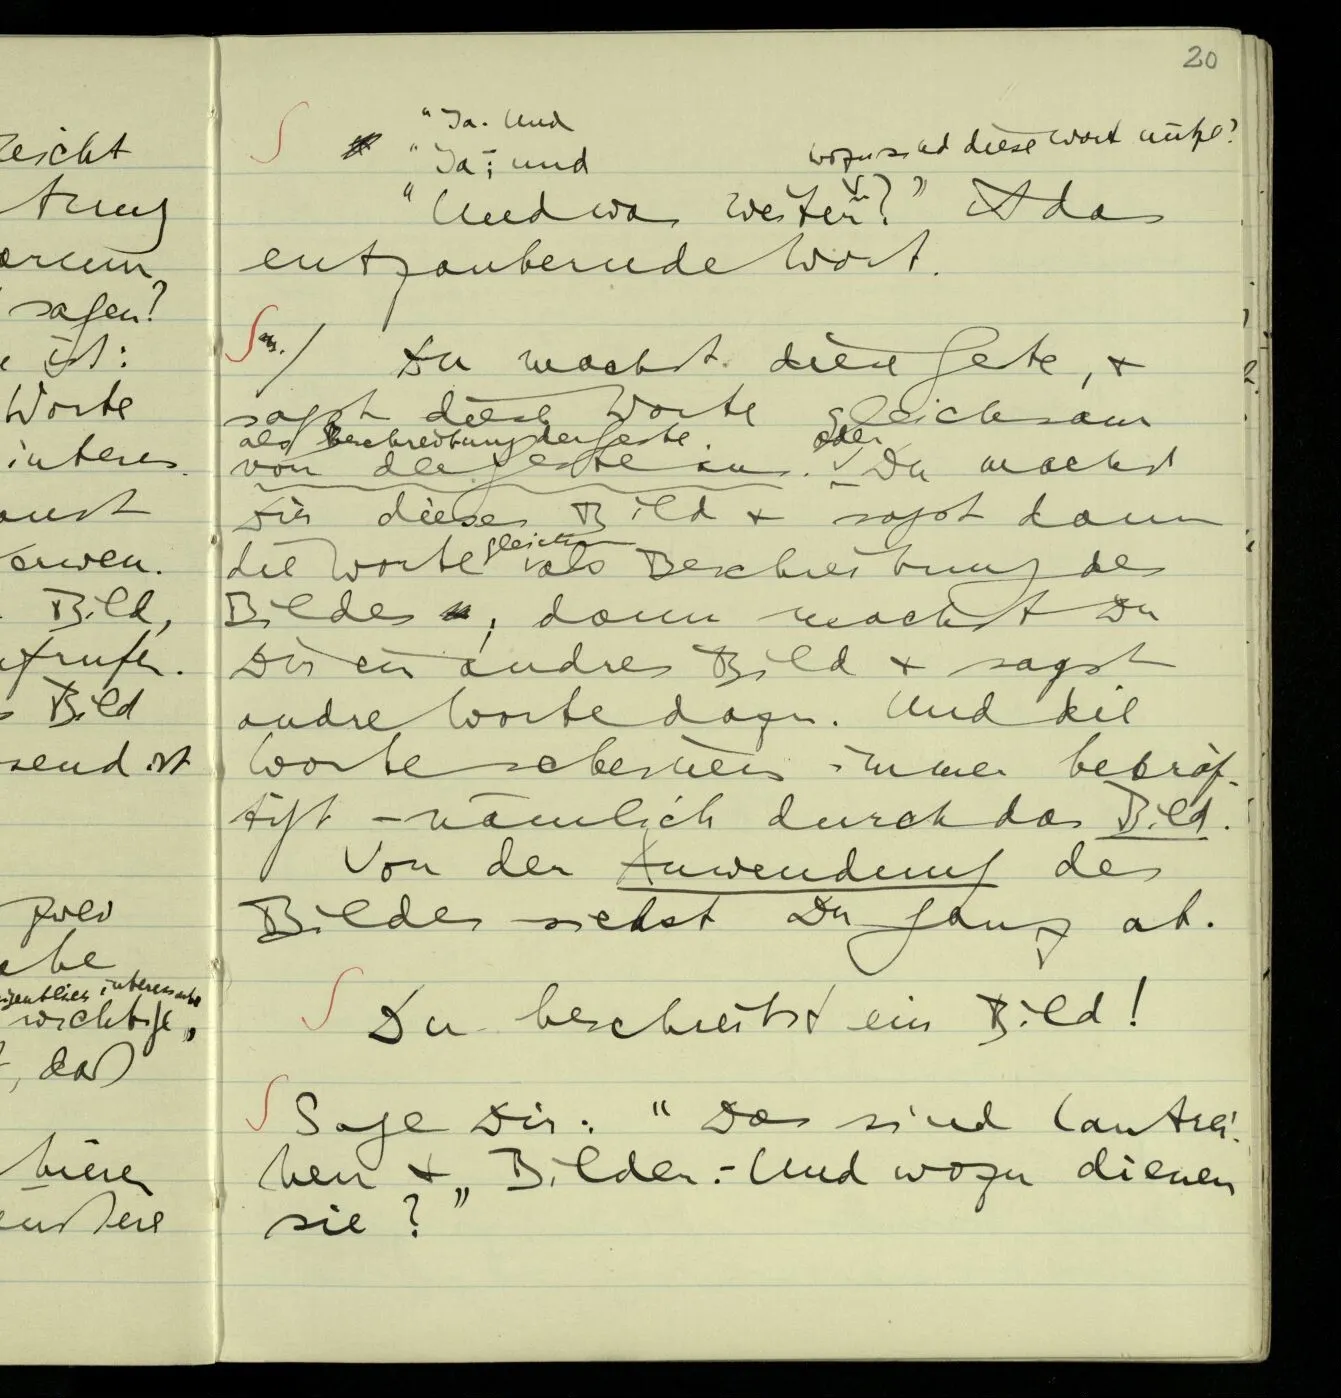 20
eicht
sagen?
ist:
Worte
interes
Bild,
Bild
send ist
wichtige",
, daß
"Ja. Und
"Ja; und
wozu sind diese Worte nütze?
"Und was weiter?" ist das
entzaubernde Wort.
Du machst diese Geste, &
sagst diese Worte gleichsam
als Beschreibung der Geste. oder
von der Geste aus. Du machst
Dir dieses Bild & sagst dann
gleichsam
die Worte als Beschreibung des
Bildes, dann machst Du
Dir ein andres Bild & sagst
andre Worte dazu. Und die
Worte scheinen immer bekräf-
tigt – nämlich durch das Bild.
Von der Anwendung des
Bildes siehst Du ganz ab.
Du beschreibst ein Bild!
Sage Dir: "Das sind Lautrei-
hen & Bilder. – Und wozu dienen
sie?"